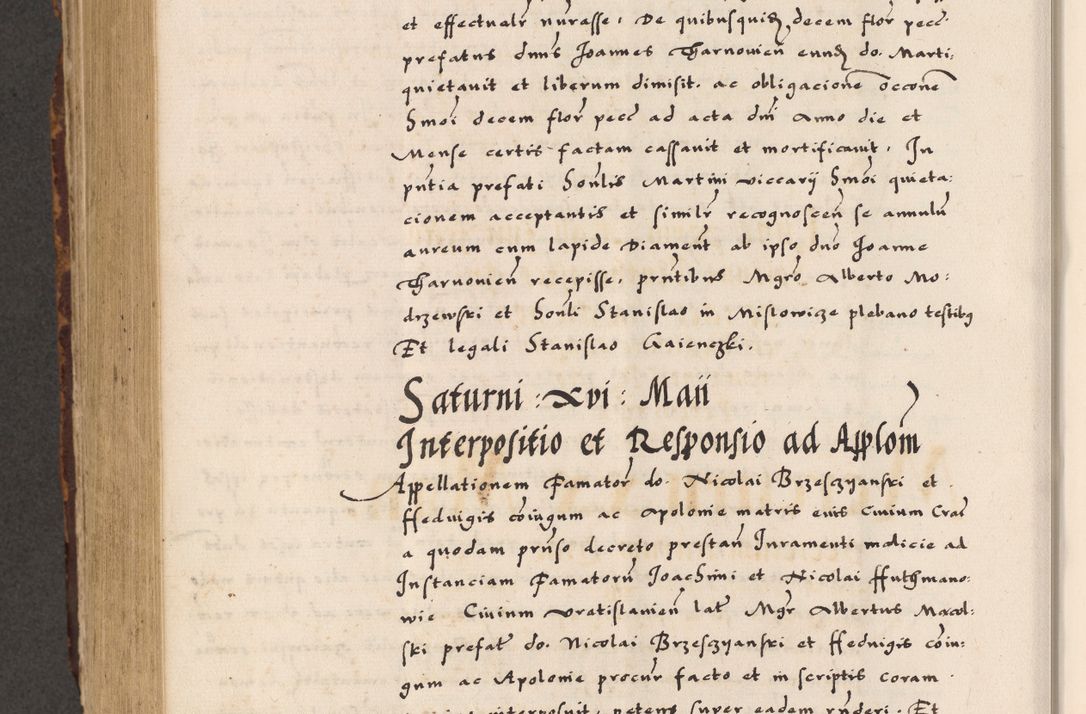 et effectualr nūrasse. De quibusquidz decem flor pecc̄
prefatus dnūs Joannes Tharnovien̄ eundz do. Marti:
quietavit et liberum dimisit. ac obligacionē occonē
Smōi decem flor̄ pecc̄ ad acta dn̄i Anno die et
Mense certis factam cassavit et mortificavit. In
pn̄tia prefati Honlis Martini viccarij Smōi quieta:
cionem acceptantis et similr̄ recognoscen̄ se annulū
aureum cum lapide Diament̄ ab ipso dn̄o Joanne
Tharnovien̄ recepisse. prn̄tibus Mgrō Alberto Mo:
drzewski et Honli Stanislao in Mislowicze plebano testibus
Et legali Stanislao Gaienczki.
Saturni : xvi : Maii
Interpositio et Responsio ad Applōm
Appellationem Famator̄ do. Nicolai Brzesczyanski et
Hedvigis cōiugum ac Apolonie matris eius Civium Crac̄
a quodam prn̄so decreto prestan̄ Iuramenti malicie ad
Instanciam Famatorū Joachimi et Nicolai Huthmano:
wie Civium Vratislavien̄ lat̄ Mgr̄ Albertus Mocol:
ski prefat̄ do. Nicolai Brzesczyanski et Hedvigis cōiu:
gum ac Apolonie procur̄ facto et in scriptis coram
interposuit. petens super eadem rn̄deri. Et